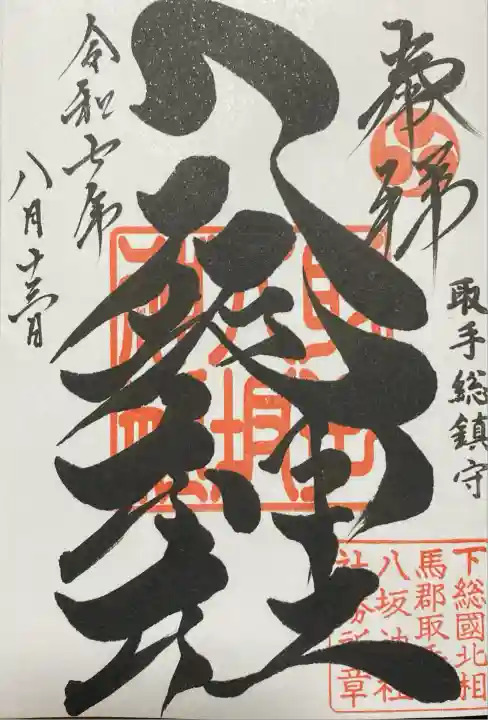 奉拝
取手総鎮守
八坂神社
令和七年
八月十
下総國北相
馬郡取手
八坂神社
社務所章